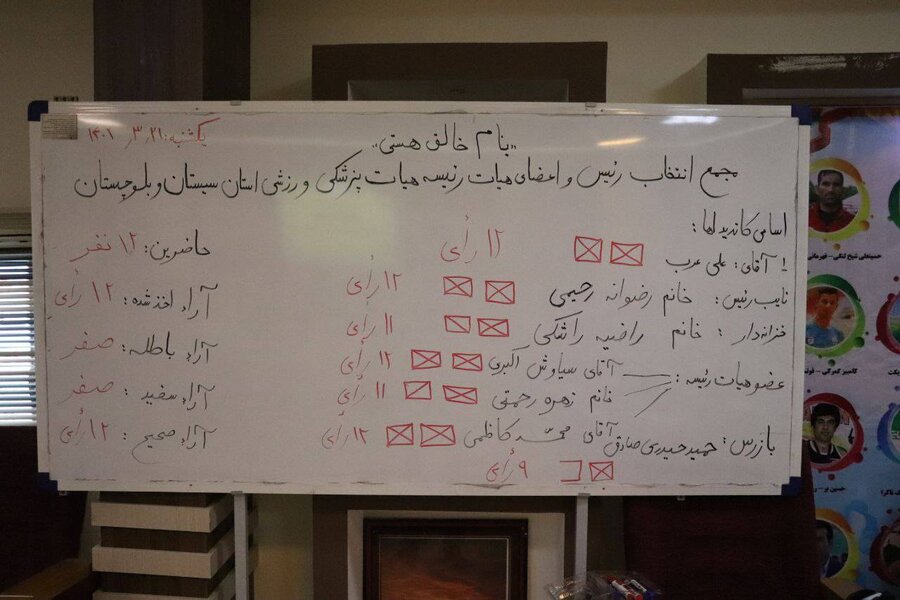 یکشنبه: ۱۴۰۱/۳/۲۱
"بنام خالق هستی"
مجمع انتخاب رئیس و اعضای هیات رئیسه هیات پزشکی ورزشی استان سیستان و بلوچستان
اسامی کاندیداها:
۱ آقای: علی عرب ۱۲ رأی
نایب رئیس: خانم رضوانه رحیمی ۱۲ رأی
خزانه دار: خانم راضیه راشکی ۱۱ رأی
عضو هیات رئیسه: آقای سیاوش اکبری ۱۲ رأی
خانم زهره رحمتی ۱۱ رأی
بازرس: آقای محمد کاظمی ۱۲ رأی
حمید حیدری صادق ۹ رأی
حاضرین: ۱۲ نفر
آراء اخذ شده: ۱۲ رأی
آراء باطله: صفر
آراء سفید: صفر
آراء صحیح: ۱۲ رأی
حسینعلی شیخ لنگی - قهرمانی
کامبیز گمرکی - فوتبا
حسین بر - ر